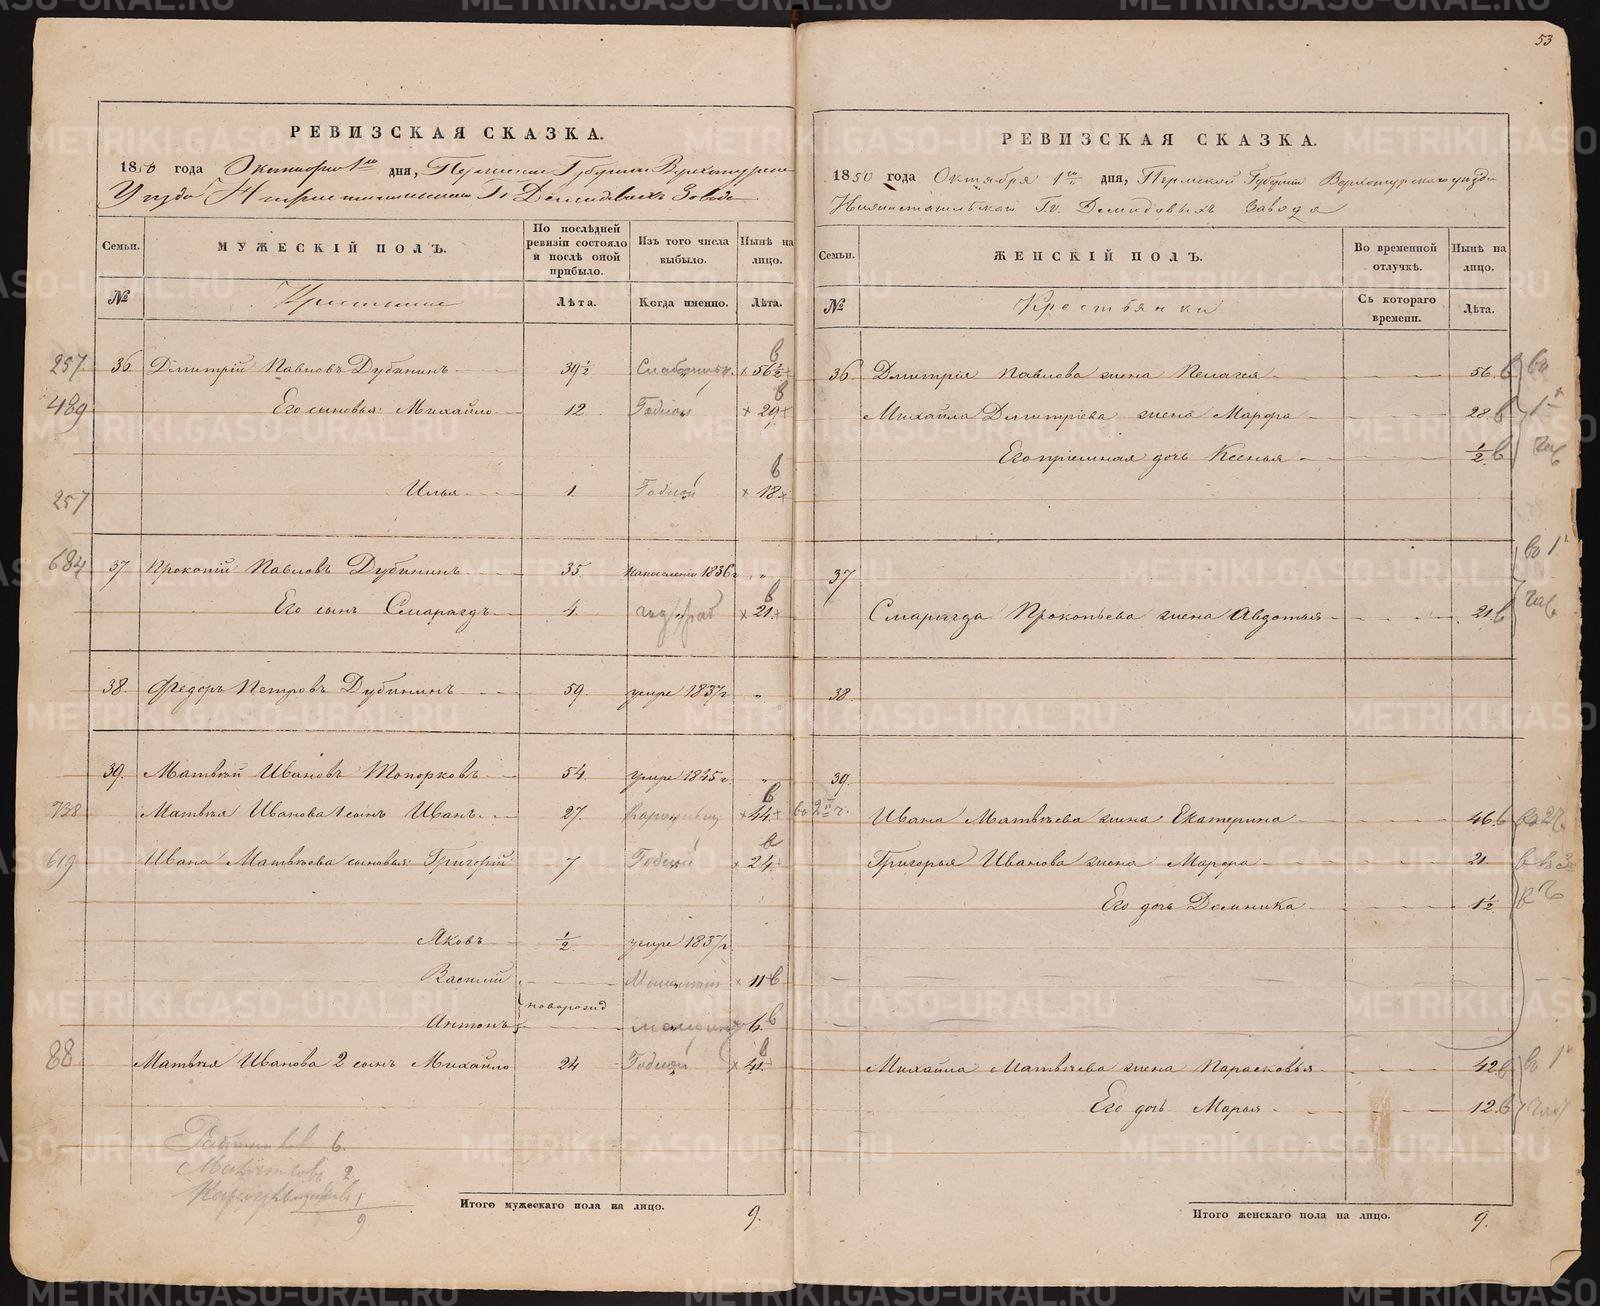 53
РЕВИЗСКАЯ СКАЗКА.
1850 года Октября 1го дня, Пермской Губернии Верхотурскаго
Уезда Нижнетагильскаго Гг. Демидовыхъ Завода
Семьи. МУЖЕСКІЙ ПОЛЪ. По послѣдней ревизіи состояло и послѣ оной прибыло. Изъ того числа выбыло. Нынѣ на лицо.
№ Крестьяне Лѣта. Когда именно. Лѣта.
257. 36 Дмитрій Павловъ Дубининъ 39 1/2 × 56 1/2 в
489 Его сыновья: Михайло 12 Годной × 29 в
257 Илья 1. Годной × 18 в
684 37 Прокопій Павловъ Дубининъ 35. 1836г „
Его сынъ Смарагдъ 4. × 21. в
38. Федоръ Петровъ Дубининъ 59. умре 1837г „
39. Матвѣй Ивановъ Топорковъ 54. умре 1845г „
738 Матвѣя Иванова 1 сынъ Иванъ 27. × 44 в
619 Ивана Матвѣева сыновья: Григорій 7 Годной × 24 в
Яковъ 1/2 умре 1837г
Василій × 11 в
новорожд
Антонъ 6. в
88 Матвѣя Иванова 2 сынъ Михайло 24 Годной × 41. в
6.
2
1
9
Итого мужескаго пола на лицо. 9.
РЕВИЗСКАЯ СКАЗКА.
1850 года Октября 1го дня, Пермской Губерніи Верхотурскаго уезда
Нижнетагильскаго Гг. Демидовыхъ завода
Семьи. ЖЕНСКІЙ ПОЛЪ. Во временной отлучкѣ. Нынѣ на лицо.
№ Крестьянки Съ котораго времени. Лѣта.
36 Дмитрія Павлова жена Пелагея 56. в
Михайла Дмитріева жена Марфа 28. в
Его пріемная дочь Ксенья 1/2 в
37
Смарагда Прокопьева жена Авдотья 21. в
38
39.
Ивана Матвѣева жена Екатерина 46. в
Григорья Иванова жена Марфа 21.
Его дочь Домника 1 1/2
Михайла Матвѣева жена Парасковья 42. в
Его дочь Марья 12. в
Итого женскаго пола на лицо. 9.
METRIKI.GASO-URAL.RU